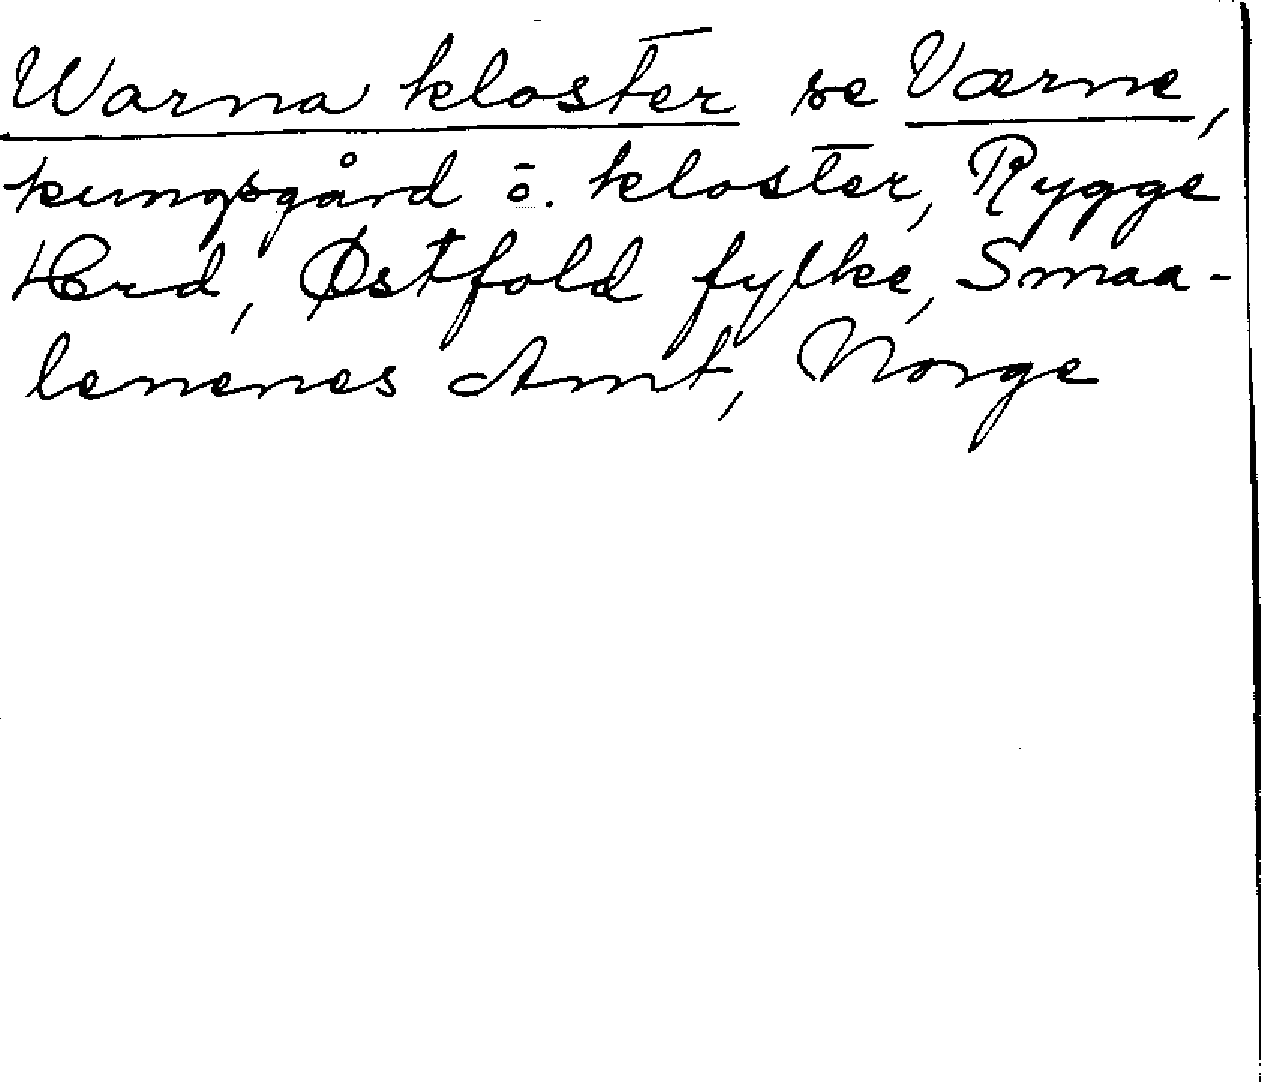 Warna kloster se Værne,
kungsgård ö. kloster, Rygge
Hrd, Østfold fylke, Smaa-
lenenes Amt, Norge